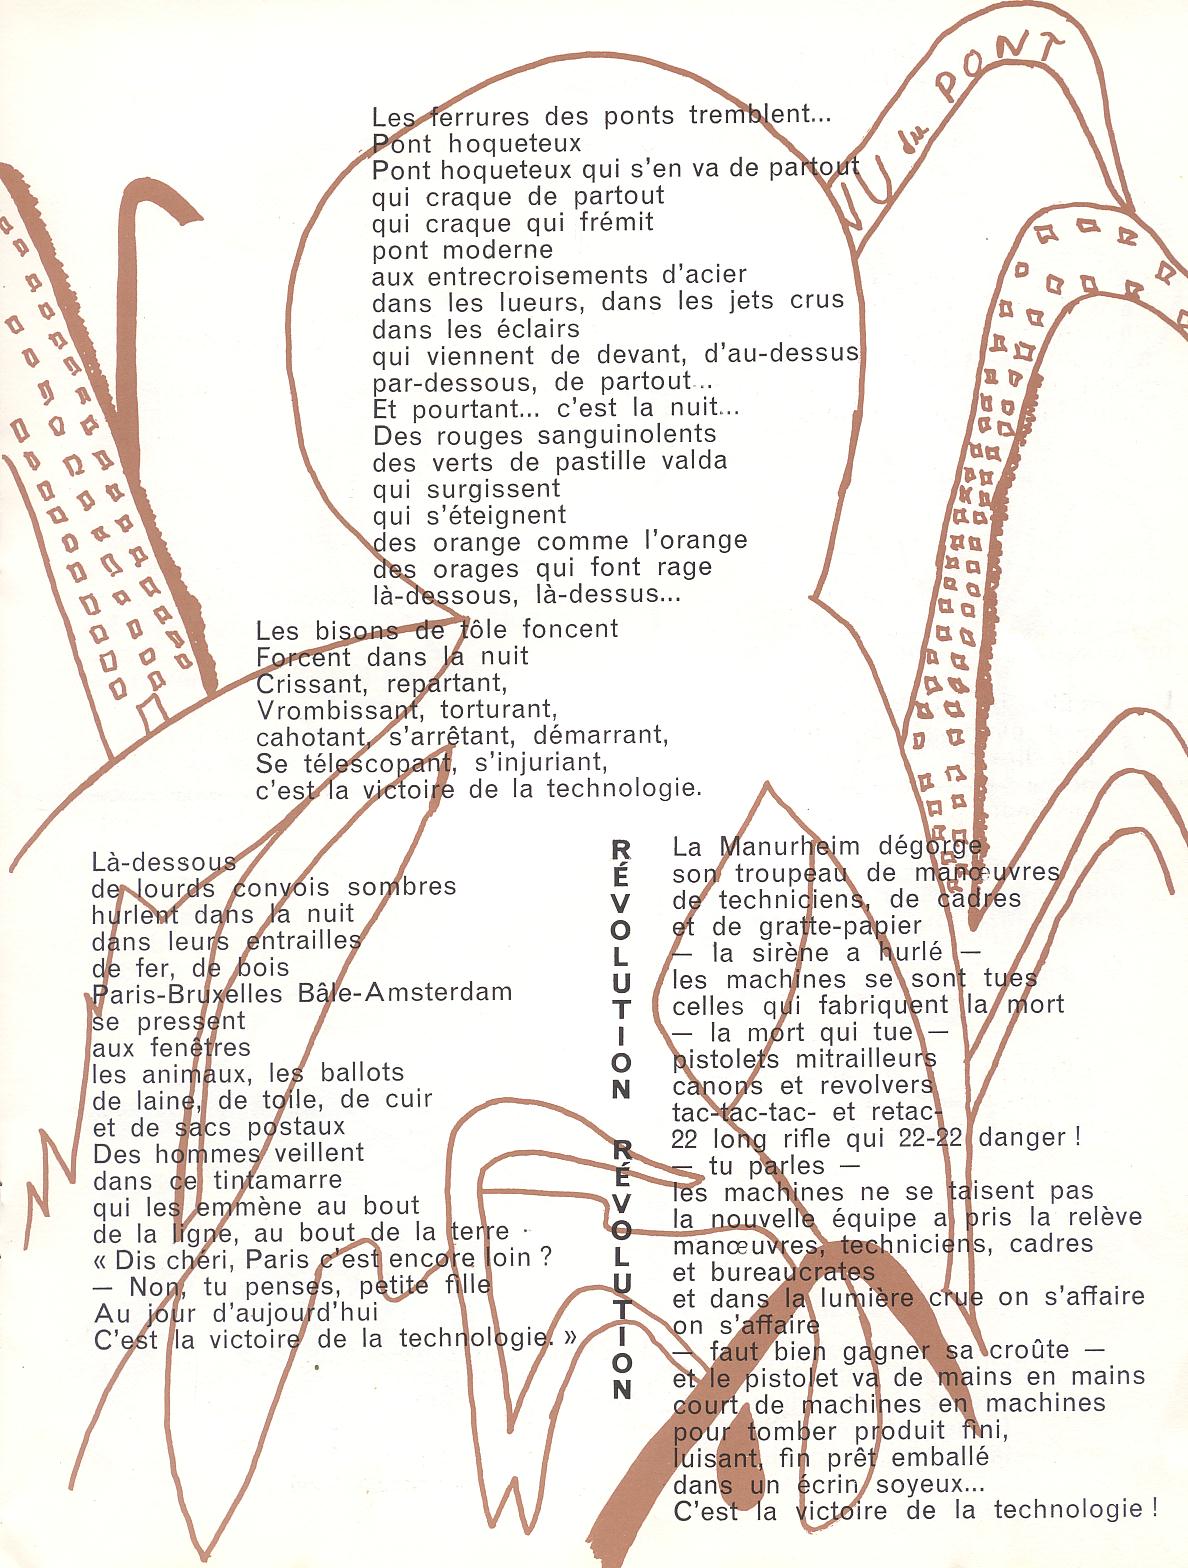 VU du PONT
Les ferrures des ponts tremblent...
Pont hoqueteux
Pont hoqueteux qui s'en va de partout
qui craque de partout
qui craque qui frémit
pont moderne
aux entrecroisements d'acier
dans les lueurs, dans les jets crus
dans les éclairs
qui viennent de devant, d'au-dessus
par-dessous, de partout...
Et pourtant... c'est la nuit...
Des rouges sanguinolents
des verts de pastille valda
qui surgissent
qui s'éteignent
des orange comme l'orange
des orages qui font rage
là-dessous, là-dessus...
Les bisons de tôle foncent
Forcent dans la nuit
Crissant, repartant,
Vrombissant, torturant,
cahotant, s'arrêtant, démarrant,
Se télescopant, s'injuriant,
c'est la victoire de la technologie.
Là-dessous
de lourds convois sombres
hurlent dans la nuit
dans leurs entrailles
de fer, de bois
Paris-Bruxelles Bâle-Amsterdam
se pressent
aux fenêtres
les animaux, les ballots
de laine, de toile, de cuir
et de sacs postaux
Des hommes veillent
dans ce tintamarre
qui les emmène au bout
de la ligne, au bout de la terre
« Dis chéri, Paris c'est encore loin ?
— Non, tu penses, petite fille
Au jour d'aujourd'hui
C'est la victoire de la technologie. »
RÉVOLUTION RÉVOLUTION
La Manurheim dégorge
son troupeau de manœuvres
de techniciens, de cadres
et de gratte-papier
— la sirène a hurlé —
les machines se sont tues
celles qui fabriquent la mort
— la mort qui tue —
pistolets mitrailleurs
canons et revolvers
tac-tac-tac- et retac-
22 long rifle qui 22-22 danger !
— tu parles —
les machines ne se taisent pas
la nouvelle équipe a pris la relève
manœuvres, techniciens, cadres
et bureaucrates
et dans la lumière crue on s'affaire
on s'affaire
— faut bien gagner sa croûte —
et le pistolet va de mains en mains
court de machines en machines
pour tomber produit fini,
luisant, fin prêt emballé
dans un écrin soyeux...
C'est la victoire de la technologie !